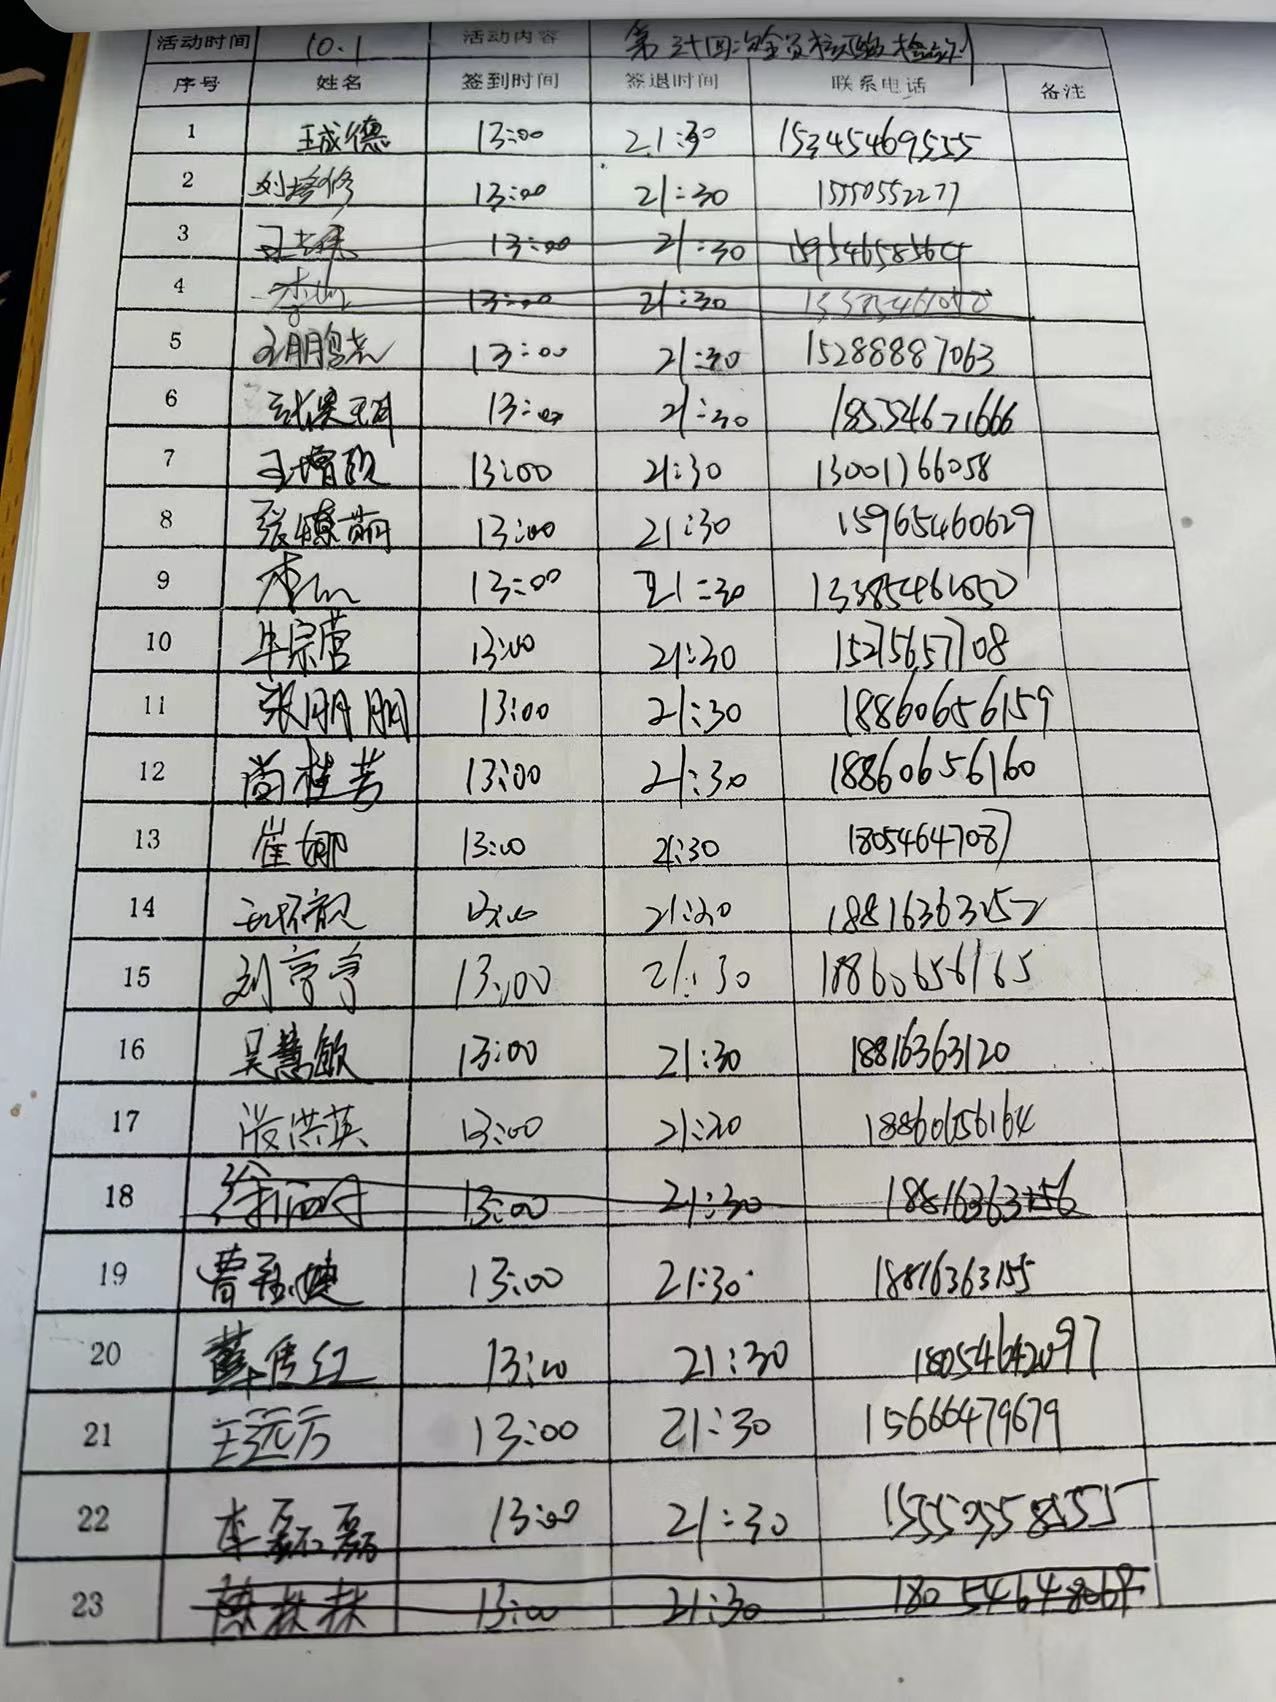 活动时间 10.1 活动内容 第三十四次全员核酸检测
序号 姓名 签到时间 签退时间 联系电话 备注
1 王成德 13:00 21:30 15345469555
2 刘培修 13:00 21:30 15550552277
3 13:00 21:30 15954658564
4 李山 13:00 21:30
5 王鹏志 13:00 21:30 15288887063
6 13:00 21:30 18554671666
7 王增 13:00 21:30 13001766058
8 张萌 13:00 21:30 15965460629
9 李山 13:00 21:30 13385461050
10 牛宗营 13:00 21:30 15275657708
11 张朋朋 13:00 21:30 18860656159
12 尚桂芳 13:00 21:30 18860656160
13 崔娜 13:00 21:30 18054647087
14 13:00 21:30 18816363152
15 刘亭亭 13:00 21:30 18860656165
16 吴慧敏 13:00 21:30 18816363120
17 洪英 13:00 21:30 18860656164
18 徐 13:00 21:30 18816363156
19 曹 婕 13:00 21:30 18816363155
20 薛 红 13:00 21:30 18054642097
21 王远方 13:00 21:30 15666479679
22 李磊磊 13:00 21:30
23 陈 13:00 21:30 18054648068